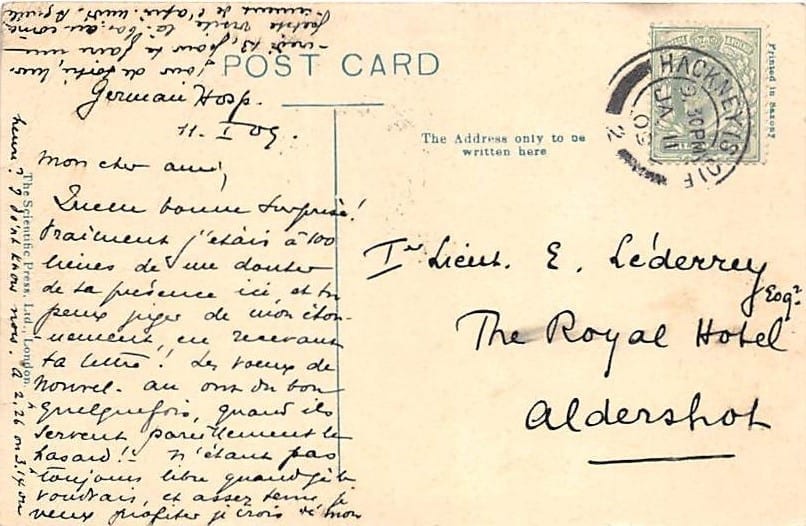 POST CARD
The Address only to be
written here
Printed in Saxony
The Scientific Press, Ltd., London.
HACKNEY
JA 11
09
2
German Hosp.
11. I. 09.
Mon cher ami,
Quelle bonne surprise!
Vraiment j'étais à 100
lieues de me douter
de ta présence ici, et tu
peux juger de mon éton-
nement, en recevant
ta lettre! Les voeux de
Nouvel-an ont du bon
quelquefois, quand ils
servent pareillement le
hasard!- N'étant pas
toujours libre quand je le
voudrais, et assez
veux profiter je crois de mon
jour de sortie,
13, pour te faire
visite
de l'après-midi.
I don't know now. 2,26 on 3.14
1er Lieut. E. Léderrey
Esqr.
The Royal Hotel
Aldershot